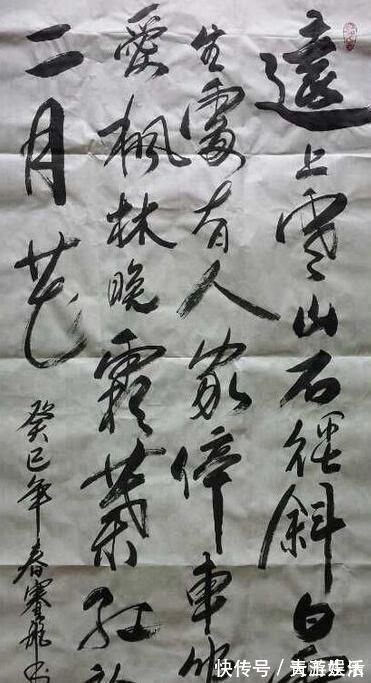 遠上寒山石徑斜白雲
生處有人家停車坐
愛楓林晚霜葉紅於
二月花
癸巳年春賽飛书
快传号／青游娱乐